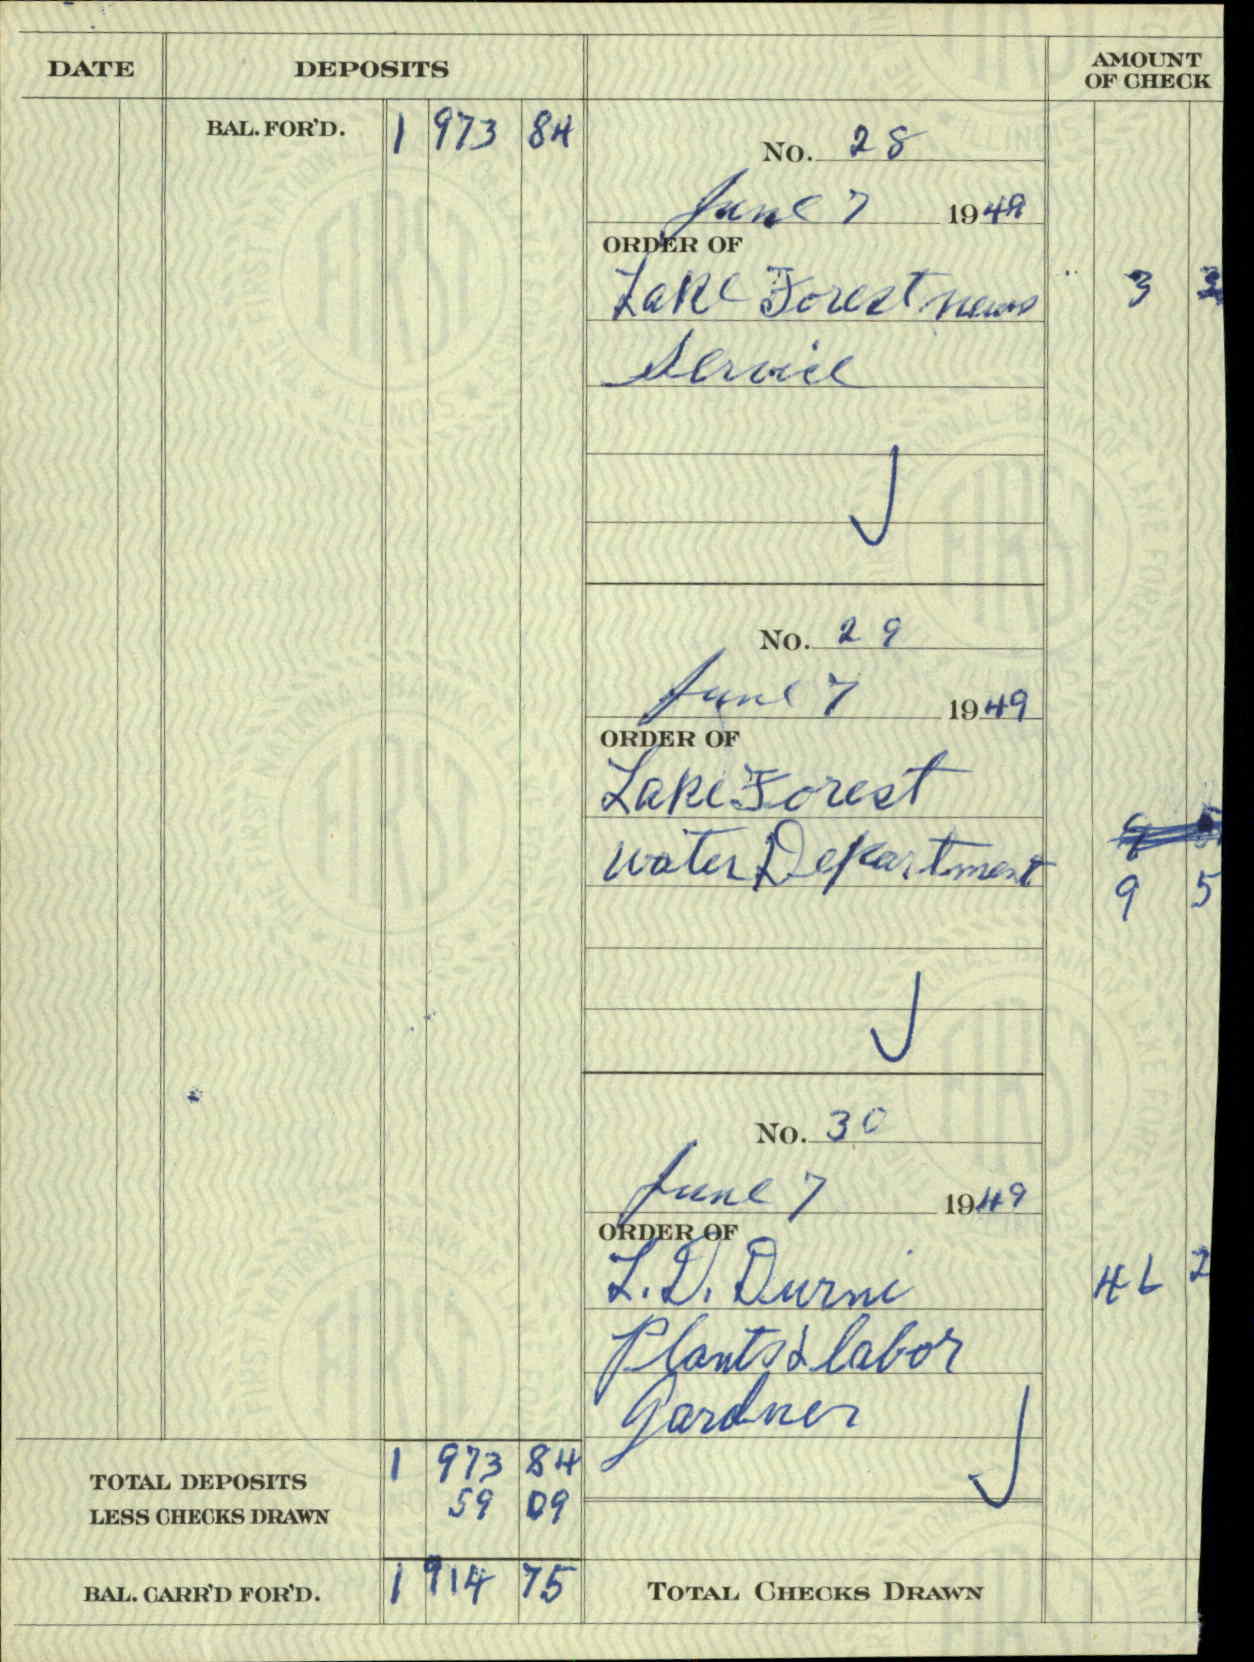 DATE DEPOSITS AMOUNT OF CHECK
BAL. FOR'D. 1 973 84
No. 28
June 7 1949
ORDER OF
Lake Forest news 3
Service
No. 29
June 7 1949
ORDER OF
Lake Forest
water Department
9 5
No. 30
June 7 1949
ORDER OF
L. D. Durni 46 2
Plants & labor
Gardner
TOTAL DEPOSITS 1 973 84
LESS CHECKS DRAWN 59 09
BAL. CARR'D FOR'D. 1 914 75 TOTAL CHECKS DRAWN